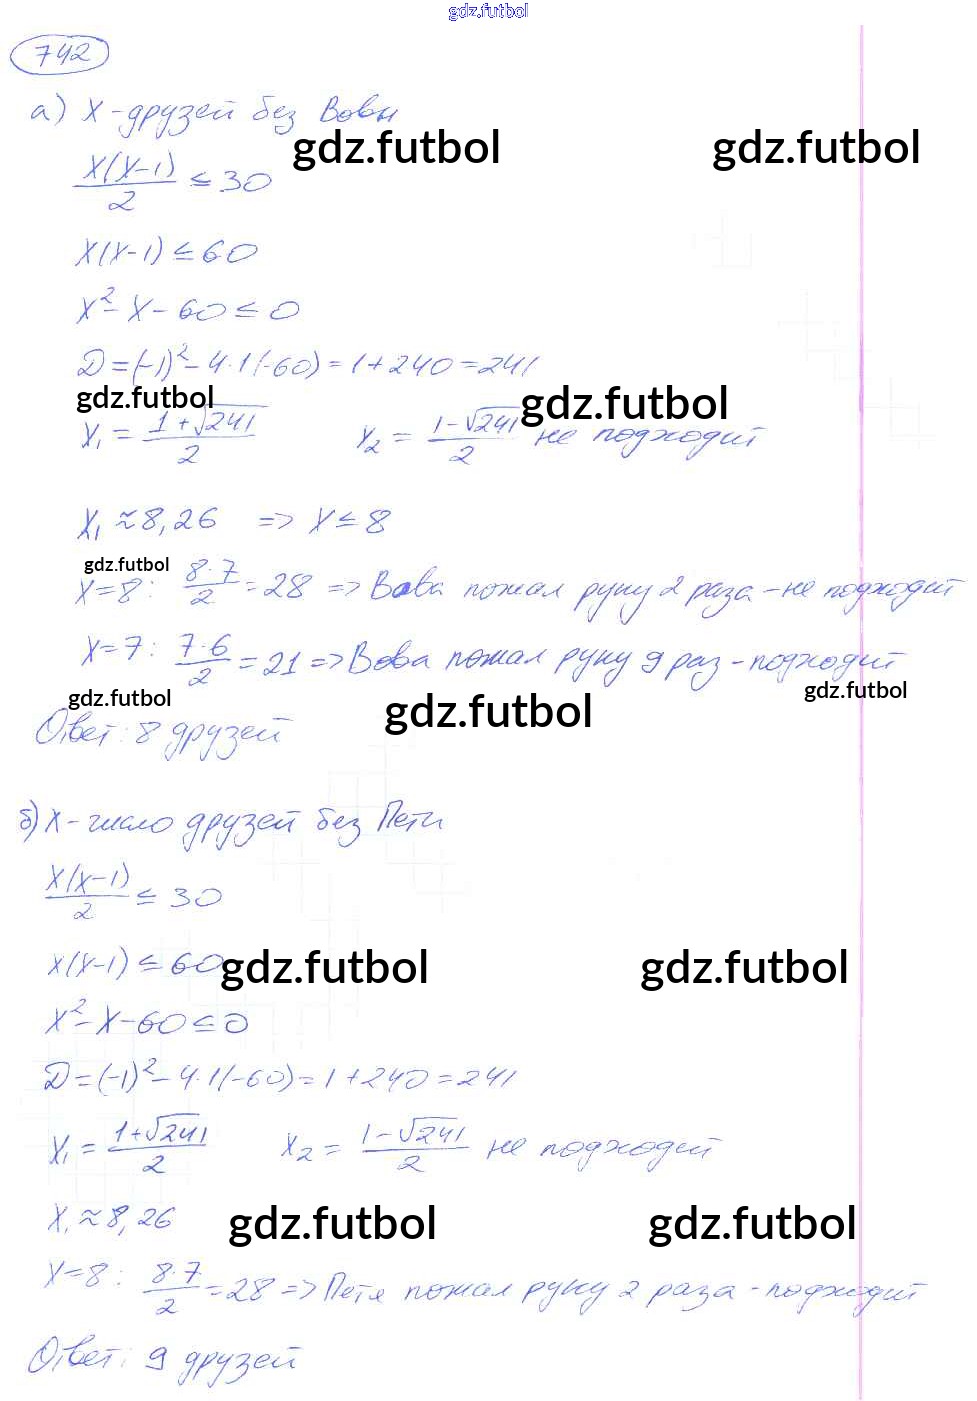 gdz.futbol
742
а) X - друзей без Вовы
gdz.futbol gdz.futbol
X(X-1)/2 ≤ 30
X(X-1) ≤ 60
X² - X - 60 ≤ 0
D = (-1)² - 4·1(-60) = 1 + 240 = 241
gdz.futbol gdz.futbol
X₁ = (1+√241)/2 X₂ = (1-√241)/2 не подходит
X₁ ≈ 8,26 => X ≤ 8
gdz.futbol
X=8: 8·7/2 = 28 => Вова пожал руку 2 раза - не подходит
X=7: 7·6/2 = 21 => Вова пожал руку 9 раз - подходит
gdz.futbol gdz.futbol gdz.futbol
Ответ: 8 друзей
б) X - число друзей без Пети
X(X-1)/2 ≤ 30
X(X-1) ≤ 60
gdz.futbol gdz.futbol
X² - X - 60 ≤ 0
D = (-1)² - 4·1(-60) = 1 + 240 = 241
X₁ = (1+√241)/2 X₂ = (1-√241)/2 не подходит
X₁ ≈ 8,26
gdz.futbol gdz.futbol
X=8: 8·7/2 = 28 => Петя пожал руку 2 раза - подходит
Ответ: 9 друзей